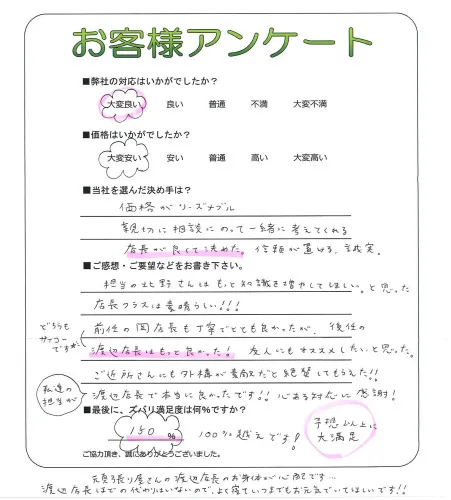 お客様アンケート
■弊社の対応はいかがでしたか？
大変良い 良い 普通 不満 大変不満
■価格はいかがでしたか？
大変安い 安い 普通 高い 大変高い
■当社を選んだ決め手は？
価格がリーズナブル
親切に相談にのって一緒に考えてくれる
店長が良くて決めた。信頼が置ける、誠実。
■ご感想・ご要望などをお書き下さい。
担当の北野さんはもっと知識を増やしてほしい。と思った
店長クラスは素晴らしい!!!
どちらもサイコーですが
前任の岡店長も丁寧でとても良かったが、後任の
渡辺店長はもっと良かった! 友人にもオススメしたいと思った。
ご近所さんにも外構が素敵だと絶賛してもらえた!!
私達の担当が
渡辺店長で本当に良かったです!! 心ある対応に感謝!
■最後に、ズバリ満足度は何%ですか？
150 % 100%越えです!
予想以上に大満足
ご協力頂き、誠にありがとうございました。
頑張り屋さんの渡辺店長のお身体が心配です…
渡辺店長ほどの代わりはいないので、よく寝ていつまでもお元気でいてほしいです!!